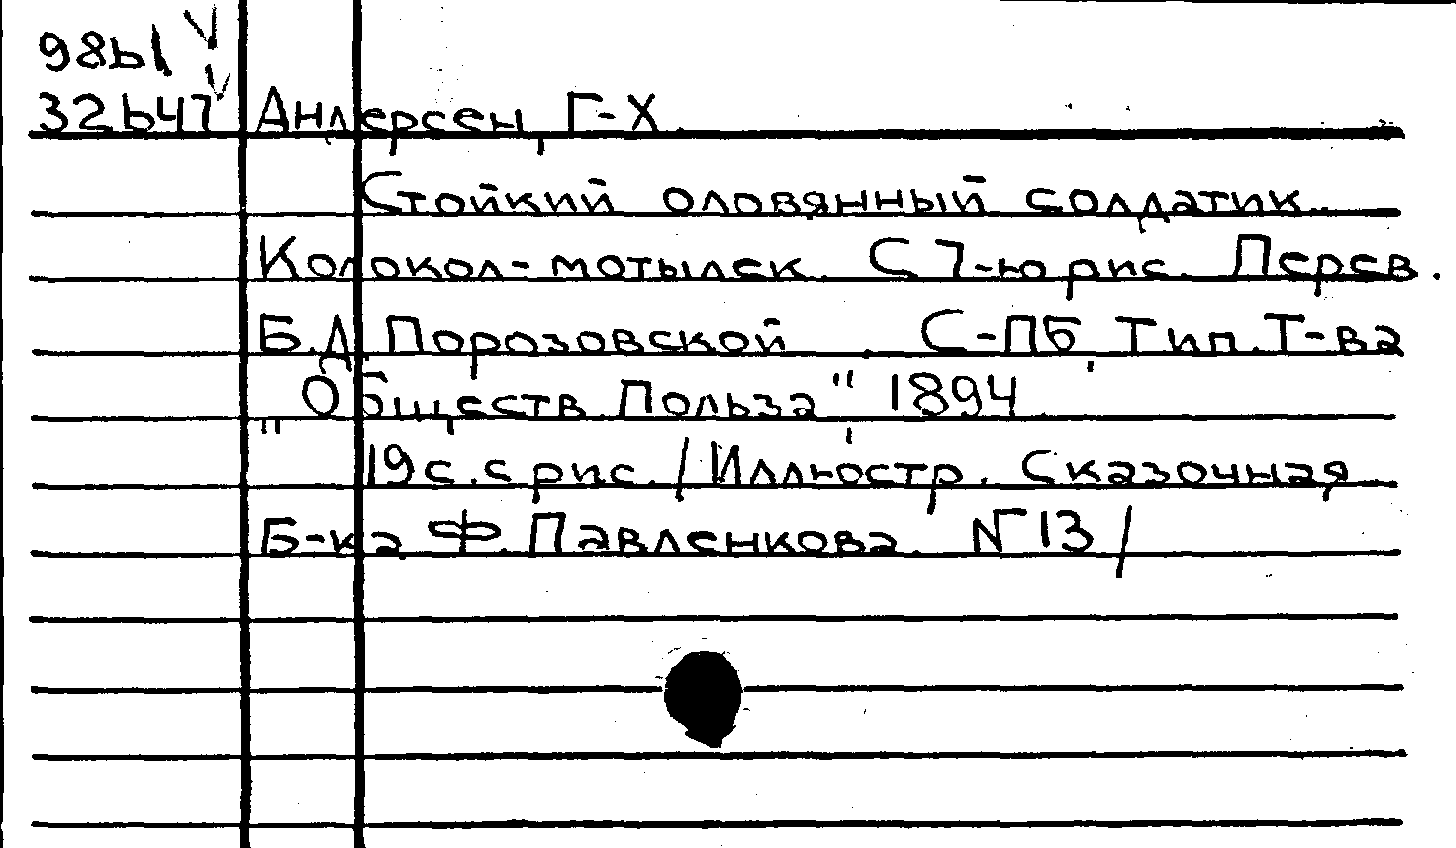 98ы V
32647 V Андерсен, Г-Х.
Стойкий оловянный солдатик.
Колокол-мотылек. С 7-ю рис. Перев.
Б.Д. Порозовской. С-ПБ, Тип. Т-ва
"Обществ. Польза", 1894.
19 с. с рис. /Иллюстр. Сказочная
Б-ка Ф. Павленкова. № 13/